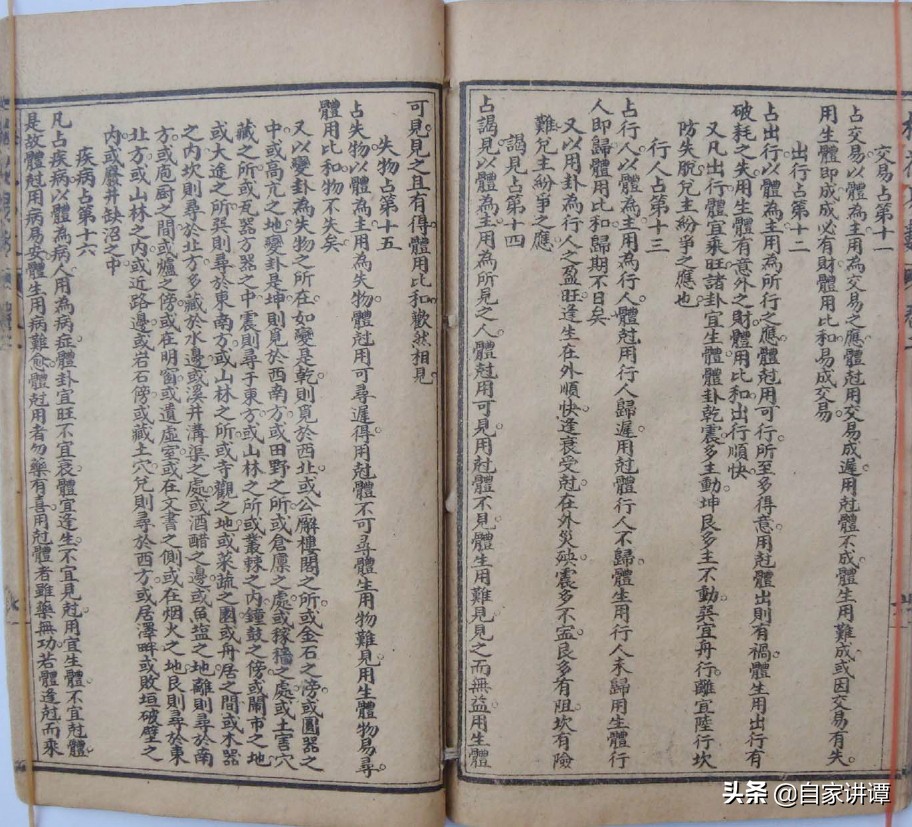 交易占第十一
占交易以體為主用為交易之應體尅用交易成遲用尅體不成體生用難成或因交易有失
用生體即成成必有財體用比和易成交易
出行占第十二
占出行以體為主用為所行之應體尅用可行所至多得意用尅體出則有禍體生用出行有
破耗之失用生體有意外之財體用比和出行順快
又凡出行體宜乘旺諸卦宜生體體卦乾震多主動坤艮多主不動巽宜舟行離宜陸行坎
防失脫兌主紛爭之應也
行人占第十三
占行人以體為主用為行人體尅用行人歸遲用尅體行人不歸體生用行人未歸用生體行
人即歸體用比和歸期不日矣
又以用卦為行人之盈旺逢生在外順快逢衰受尅在外災殃震多不寍艮多有阻坎有險
難兌主紛爭之應
謁見占第十四
占謁見以體為主用為所見之人體尅用可見用尅體不見體生用難見見之而無益用生體
可見見之且有得體用比和歡然相見
失物占第十五
占失物以體為主用為失物體尅用可尋遲得用尅體不可尋體生用物難見用生體物易尋
體用比和物不失矣
又以變卦為失物之所在如變是乾則覓於西北或公廨樓閣之所或金石之傍或圓器之
中或高亢之地變卦是坤則覓於西南方或田野之所或倉廪之處或稼穡之處或土窖穴
藏之所或瓦器方器之中震則尋于東方或山林之所或叢棘之內鐘鼓之傍或鬧市之地
或大途之所巽則尋於東南方或山林之所或寺觀之地或菜蔬之園或舟居之間或木器
之內坎則尋於北方多藏於水邊或溪井溝渠之處或酒醋之邊或魚盐之地離則尋於南
方或庖厨之間或爐之傍或在明窗或遺虛室或在文書之側或在烟火之地艮則尋於東
北方或山林之內或近路邊或岩石傍或藏土穴兌則尋於西方或居澤畔或敗垣破壁之
內或廢井缺沼之中
疾病占第十六
凡占疾病以體為病人用為病症體卦宜旺不宜衰體宜逢生不宜見尅用宜生體不宜尅體
是故體尅用病易安體生用病難愈體尅用者勿藥有喜用尅體者雖藥無功若體逢尅而來
头条 @自家讲谭